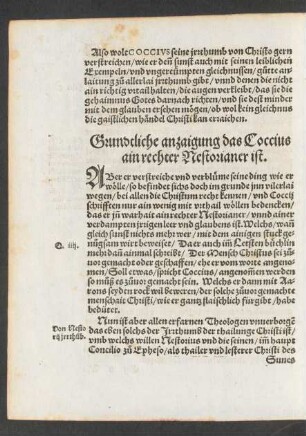 Also wolt COCCIVS seine jrrthumb von Christo gern
verstreichen/ wie er den sunst auch mit seinen leiblichen
Exempeln/ vnd vngereümpten gleichnussen/ gůtte an-
laitung zů allerlai jrrthumb gibt/ vnnd denen die nicht
ain richtig vrtail halten/ die augen verkleibt/ das sie die
gehaimnus Gotes darnach richten/ vnd sie dest minder
mit dem glauben ersehen mögen/ ob wol kein gleichnus
die gaistlichen händel Christi kan erraichen.
Grundtliche anzaigung das Coccius
ain rechter Nestorianer ist.
ABer er verstreiche vnd verblüme seine ding wie er
wölle/ so befindet sichs doch im grunde jnn vilerlai
wegen/ bei allen die Christum recht kennen/ vnd Coccij
schrifften nur ain wenig mit vrthail wöllen bedencken/
das er ja warhait ain rechter Nestorianer/ vnnd ainer
verdampten jrrigen leer vnd glaubens ist. Welchs/ wañ
gleich sunst nichs mehr wer/ mit dem ainigen stuck ge-
nůgsam wirt beweiset/ Da er auch im̃ Letsten büchlin
mehr dañ ainmal schreibt/ Der Mensch Christus sei zů-
uor gemacht oder geschaffen/ ehe er vom worte angeno-
men/ Soll etwas/ spricht Coccius/ angenom̃en werden
so můß es zůuor gemacht sein. Welchs er dann mit Aa-
rons seyden rock wil beweren/ der solche zůuor gemachte
menschait Christi/ wie er gantz flaischlich fürgibt/ habe
bedütet.
Q. iiij.
Nun ist aber allen erfarnen Theologen vnuerborgẽ
das eben solchs der Jrrthumb der thailunge Christi ist/
vmb welchs willen Nestorius vnd die seinen/ im̃ haupt
Concilio zů Epheso/ als thailer vnd lesterer Christi des
Von Nesto
rij jrrthũb.
Sunes